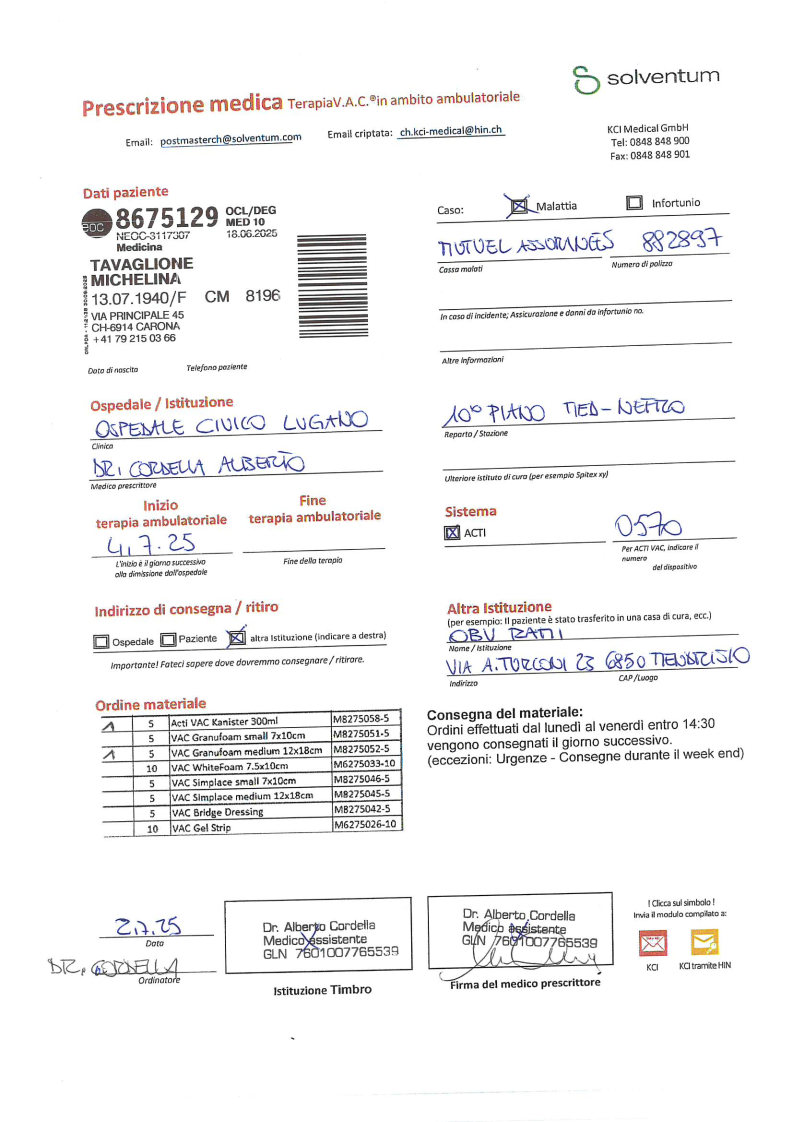 solventum
Prescrizione medica TerapiaV.A.C.®in ambito ambulatoriale
Email: postmasterch@solventum.com Email criptata: ch.kci-medical@hin.ch
KCI Medical GmbH
Tel: 0848 848 900
Fax: 0848 848 901
Dati paziente
EOC 8675129 OCL/DEG
MED 10
NEOC-3117307 18.06.2025
Medicina
TAVAGLIONE
MICHELINA
13.07.1940/F CM 8196
VIA PRINCIPALE 45
CH-6914 CARONA
+41 79 215 03 66
Data di nascita Telefono paziente
Caso: Malattia Infortunio
MUTUEL ASSURANCES 882897
Cassa malati Numero di polizza
In caso di incidente; Assicurazione e danni da infortunio no.
Altre informazioni
Ospedale / Istituzione
OSPEDALE CIVICO LUGANO
Clinica
DR. CORDELLA ALBERTO
Medico prescrittore
10° PIANO MED-NEFRO
Reparto / Stazione
Ulteriore istituto di cura (per esempio Spitex xy)
Inizio
terapia ambulatoriale
4.7.25
L'inizio è il giorno successivo
alla dimissione dall'ospedale
Fine
terapia ambulatoriale
Fine della terapia
Sistema
ACTI
0570
Per ACTI VAC, indicare il
numero
del dispositivo
Indirizzo di consegna / ritiro
Ospedale Paziente altra Istituzione (indicare a destra)
Importante! Fateci sapere dove dovremmo consegnare / ritirare.
Altra Istituzione
(per esempio: Il paziente è stato trasferito in una casa di cura, ecc.)
OBV
Nome / Istituzione
VIA A. TURCONI 23 6850 MENDRISIO
Indirizzo CAP /Luogo
Ordine materiale
1 5 Acti VAC Kanister 300ml M8275058-5
5 VAC Granufoam small 7x10cm M8275051-5
1 5 VAC Granufoam medium 12x18cm M8275052-5
10 VAC WhiteFoam 7.5x10cm M6275033-10
5 VAC Simplace small 7x10cm M8275046-5
5 VAC Simplace medium 12x18cm M8275045-5
5 VAC Bridge Dressing M8275042-5
10 VAC Gel Strip M6275026-10
Consegna del materiale:
Ordini effettuati dal lunedì al venerdì entro 14:30
vengono consegnati il giorno successivo.
(eccezioni: Urgenze - Consegne durante il week end)
2.7.25
Data
DR. CORDELLA
Ordinatore
Dr. Alberto Cordella
Medico assistente
GLN 7601007765539
Istituzione Timbro
Dr. Alberto Cordella
Medico assistente
GLN 7601007765539
Firma del medico prescrittore
! Clicca sul simbolo !
Invia il modulo compilato a:
KCI KCI tramite HIN